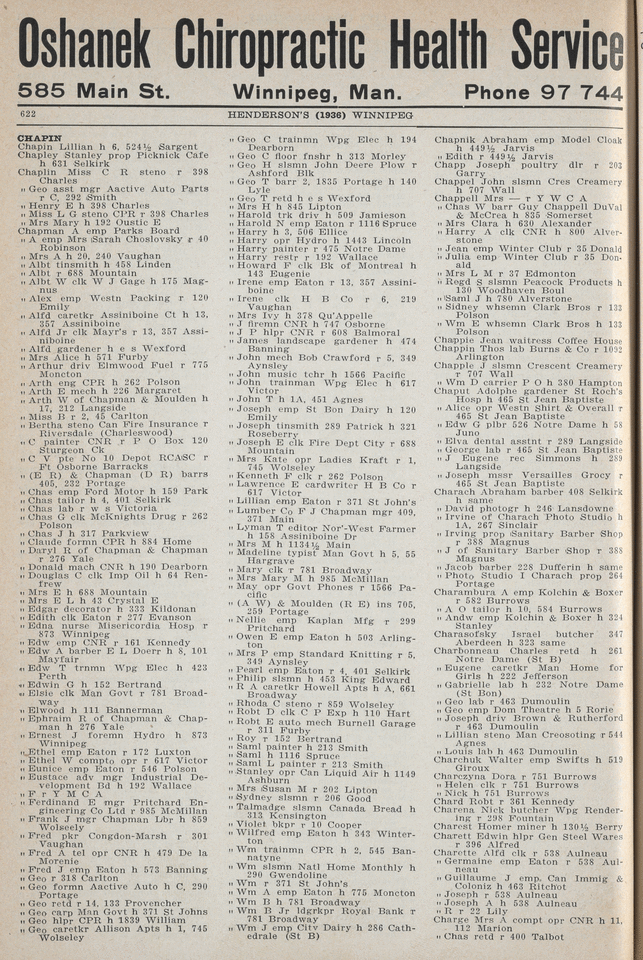 Oshanek Chiropractic Health Service
585 Main St. Winnipeg, Man. Phone 97 744
622 HENDERSON'S (1936) WINNIPEG
CHAPIN
Chapin Lillian h 6, 524½ Sargent
Chapley Stanley prop Picknick Cafe
h 631 Selkirk
Chaplin Miss C R steno r 398
Charles
" Geo asst mgr Aactive Auto Parts
r C, 292 Smith
" Henry E h 398 Charles
" Miss L G steno CPR r 398 Charles
" Mrs Mary h 192 Oustic E
Chapman A emp Parks Board
" A emp Mrs Sarah Choslovsky r 40
Robinson
" Mrs A h 20, 240 Vaughan
" Albt tinsmith h 458 Linden
" Albt r 688 Mountain
" Albt W clk W J Gage h 175 Mag-
nus
" Alex emp Westn Packing r 120
Emily
" Alfd caretkr Assiniboine Ct h 13,
357 Assiniboine
" Alfd Jr clk Mayr's r 13, 357 Assi-
niboine
" Alfd gardener h e s Wexford
" Mrs Alice h 571 Furby
" Arthur driv Elmwood Fuel r 775
Moncton
" Arth eng CPR h 262 Polson
" Arth E mech h 226 Margaret
" Arth W of Chapman & Moulden h
17, 212 Langside
" Miss B r 2, 45 Carlton
" Bertha steno Can Fire Insurance r
Riversdale (Charleswood)
" C painter CNR r P O Box 120
Sturgeon Ck
" C V pte No 10 Depot RCASC r
Ft Osborne Barracks
" (E R) & Chapman (D R) barrs
405, 232 Portage
" Chas emp Ford Motor h 159 Park
" Chas tailor h 4, 401 Selkirk
" Chas lab r w s Victoria
" Chas G clk McKnights Drug r 262
Polson
" Chas J h 317 Parkview
" Claude formn CPR h 884 Home
" Daryl R of Chapman & Chapman
r 276 Yale
" Donald mach CNR h 190 Dearborn
" Douglas C clk Imp Oil h 64 Ren-
frew
" Mrs E h 688 Mountain
" Mrs E L h 43 Crystal E
" Edgar decorator h 333 Kildonan
" Edith clk Eaton r 277 Evanson
" Edna nurse Misericordia Hosp r
873 Winnipeg
" Edw emp CNR r 161 Kennedy
" Edw A barber E L Doerr h 8, 101
Mayfair
" Edw T trnmn Wpg Elec h 423
Perth
" Edwin G h 152 Bertrand
" Elsie clk Man Govt r 781 Broad-
way
" Elwood h 111 Bannerman
" Ephraim R of Chapman & Chap-
man h 276 Yale
" Ernest J foremn Hydro h 873
Winnipeg
" Ethel emp Eaton r 172 Luxton
" Ethel W compto opr r 617 Victor
" Eunice emp Eaton r 546 Polson
" Eustace adv mgr Industrial De-
velopment Bd h 192 Wallace
" F r Y M C A
" Ferdinand E mgr Pritchard En-
gineering Co Ltd r 985 McMillan
" Frank J mgr Chapman Lbr h 859
Wolseley
" Fred pkr Congdon-Marsh r 301
Vaughan
" Fred A tel opr CNR h 479 De la
Morenie
" Fred J emp Eaton h 573 Banning
" Geo r 318 Carlton
" Geo formn Aactive Auto h C, 290
Portage
" Geo retd r 14, 133 Provencher
" Geo carp Man Govt h 371 St Johns
" Geo hlpr CPR h 1839 William
" Geo caretkr Allison Apts h 1, 745
Wolseley
" Geo C trainmn Wpg Elec h 194
Dearborn
" Geo C floor fnshr h 313 Morley
" Geo H slsmn John Deere Plow r
Ashford Blk
" Geo T barr 2, 1835 Portage h 140
Lyle
" Geo T retd h e s Wexford
" Mrs H h 845 Lipton
" Harold trk driv h 509 Jamieson
" Harold N emp Eaton r 1116 Spruce
" Harry h 3, 506 Ellice
" Harry opr Hydro h 1443 Lincoln
" Harry painter r 475 Notre Dame
" Harry restr r 192 Wallace
" Howard F clk Bk of Montreal h
143 Eugenie
" Irene emp Eaton r 13, 357 Assini-
boine
" Irene clk H B Co r 6, 219
Vaughan
" Mrs Ivy h 378 Qu'Appelle
" J firemn CNR h 747 Osborne
" J P hlpr CNR r 608 Balmoral
" James landscape gardener h 474
Banning
" John mech Bob Crawford r 5, 349
Aynsley
" John music tchr h 1566 Pacific
" John trainman Wpg Elec h 617
Victor
" John T h 1A, 451 Agnes
" Joseph emp St Bon Dairy h 120
Emily
" Joseph tinsmith 289 Patrick h 321
Roseberry
" Joseph E clk Fire Dept City r 688
Mountain
" Mrs Kate opr Ladies Kraft r 1,
745 Wolseley
" Kenneth F clk r 262 Polson
" Lawrence E cardwriter H B Co r
617 Victor
" Lillian emp Eaton r 371 St John's
" Lumber Co F J Chapman mgr 409,
371 Main
" Lyman T editor Nor'-West Farmer
h 158 Assiniboine Dr
" Mrs M h 1134½ Main
" Madeline typist Man Govt h 5, 55
Hargrave
" Mary clk r 781 Broadway
" Mrs Mary M h 985 McMillan
" May opr Govt Phones r 1566 Pa-
cific
" (A W) & Moulden (R E) ins 705,
259 Portage
" Nellie emp Kaplan Mfg r 299
Pritchard
" Owen E emp Eaton h 503 Arling-
ton
" Mrs P emp Standard Knitting r 5,
349 Aynsley
" Pearl emp Eaton r 4, 401 Selkirk
" Philip slsmn h 453 King Edward
" R A caretkr Howell Apts h A, 661
Broadway
" Rhoda C steno r 859 Wolseley
" Robt D clk C P Exp h 110 Hart
" Robt E auto mech Burnell Garage
r 311 Furby
" Roy r 152 Bertrand
" Saml painter h 213 Smith
" Saml h 1116 Spruce
" Saml L painter r 213 Smith
" Stanley opr Can Liquid Air h 1149
Ashburn
" Mrs Susan M r 202 Lipton
" Sydney slsmn r 206 Good
" Talmadge slsmn Canada Bread h
313 Kensington
" Violet bkpr r 10 Cooper
" Wilfred emp Eaton h 343 Winter-
ton
" Wm trainmn CPR h 2, 545 Ban-
natyne
" Wm slsmn Natl Home Monthly h
290 Gwendoline
" Wm r 371 St John's
" Wm A emp Eaton h 775 Moncton
" Wm B h 781 Broadway
" Wm B Jr ldgrkpr Royal Bank r
781 Broadway
" Wm J emp City Dairy h 286 Cath-
edrale (St B)
Chapnik Abraham emp Model Cloak
h 449½ Jarvis
" Edith r 449½ Jarvis
Chapp Joseph poultry dlr r 203
Garry
Chappel John slsmn Cres Creamery
h 707 Wall
Chappell Mrs — r Y W C A
" Chas W barr Guy Chappell DuVal
& McCrea h 835 Somerset
" Mrs Clara h 630 Alexander
" Harry A clk CNR h 800 Alver-
stone
" Jean emp Winter Club r 35 Donald
" Julia emp Winter Club r 35 Don-
ald
" Mrs L M r 37 Edmonton
" Rogd S slsmn Peacock Products h
130 Woodhaven Boul
" Saml J h 780 Alverstone
" Sidney whsemn Clark Bros r 133
Polson
" Wm E whsemn Clark Bros h 133
Polson
Chappie Jean waitress Coffee House
Chappin Thos lab Burns & Co r 1092
Arlington
Chapple J slsmn Crescent Creamery
r 707 Wall
" Wm D carrier P O h 380 Hampton
Chaput Adolphe gardener St Roch's
Hosp h 465 St Jean Baptiste
" Alice opr Westn Shirt & Overall r
465 St Jean Baptiste
" Edw G plbr 526 Notre Dame h 58
Juno
" Elva dental asstnt r 289 Langside
" George lab r 465 St Jean Baptiste
" J Eugene rec Simmons h 289
Langside
" Joseph mssr Versailles Grocy r
465 St Jean Baptiste
Charach Abraham barber 408 Selkirk
h same
" David photogr h 246 Lansdowne
" Irvine of Charach Photo Studio h
1A, 267 Sinclair
" Irving prop Sanitary Barber Shop
r 388 Magnus
" J of Sanitary Barber Shop r 388
Magnus
" Jacob barber 228 Dufferin h same
" Photo Studio I Charach prop 264
Portage
Charambura A emp Kolchin & Boxer
r 582 Burrows
" A O tailor h 10, 584 Burrows
" Andw emp Kolchin & Boxer h 324
Stanley
Charasofsky Israel butcher 347
Aberdeen h 323 same
Charbonneau Charles retd h 261
Notre Dame (St B)
" Eugene caretkr Man Home for
Girls h 222 Jefferson
" Gabrielle lab h 232 Notre Dame
(St Bon)
" Geo lab r 463 Dumoulin
" Geo emp Dom Theatre h 5 Rorie
" Joseph driv Brown & Rutherford
r 463 Dumoulin
" Lillian steno Man Creosoting r 544
Agnes
" Louis lab h 463 Dumoulin
Charchuk Walter emp Swifts h 519
Giroux
Charczyna Dora r 751 Burrows
" Helen clk r 751 Burrows
" Nick h 751 Burrows
Chard Robt r 361 Kennedy
Charena Nick butcher Wpg Render-
ing r 298 Fountain
Charest Homer miner h 130½ Berry
Charett Edwin hlpr Gen Steel Wares
r 396 Alfred
Charette Alfd clk r 538 Aulneau
" Germaine emp Eaton r 538 Aul-
neau
" Guillaume J emp. Can Immig &
Coloniz h 463 Ritchot
" Joseph r 538 Aulneau
" Joseph A h 538 Aulneau
" R r 22 Lily
Charge Mrs A compt opr CNR h 11,
112 Marion
" Chas retd r 400 Talbot